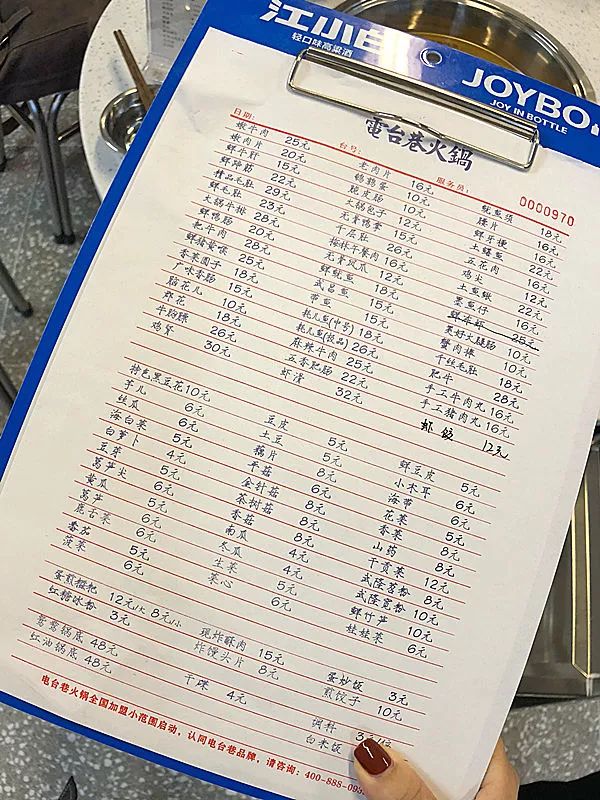 江小白
轻口味高粱酒
JOYBO
JOY IN BOTTLE
電台巷火鍋
日期：
台号：
服务员：
0000970
嫩牛肉 25元
嫩肉片 20元
鲜牛肝 15元
鲜蹄筋 22元
精品毛肚 29元
鲜毛肚 23元
火锅牛排 28元
鲜鸭肠 20元
肥牛肉 28元
鲜猪黄喉 25元
香菜圆子 18元
味香肠 15元
脑花儿 10元
郡花 18元
26元
鸡肾 30元
老肉片 16元
鹌鹑蛋 10元
脆皮肠 10元
火锅包子 12元
无骨鸭掌 15元
千层肚 26元
梅林午餐肉 16元
无骨凤爪 12元
鲜鱿鱼 15元
武昌鱼 15元
带鱼 15元
耗儿鱼(中号) 18元
耗儿鱼(极品) 26元
麻辣牛肉 25元
五香肥肠 22元
虾滑 32元
鱿鱼须 18元
腰片 16元
鲜牙梗 16元
土鳝鱼 22元
五花肉 16元
鸡尖 12元
土鱼鳅 22元
墨鱼仔 16元
25元
美好火腿肠 10元
蟹肉棒 10元
千丝毛肚 18元
肥牛 28元
手工牛肉丸 16元
手工猪肉丸 16元
虾饺 12元
特色黑豆花 10元
芋儿 6元
丝瓜 6元
海白菜 5元
白萝卜 4元
豆芽 5元
莴笋尖 6元
黄瓜 5元
莴笋 6元
鹿舌菜 6元
番茄 5元
菠菜 6元
豆皮 5元
土豆 5元
藕片 8元
平菇 6元
金针菇 8元
茶树菇 8元
香菇 8元
南瓜 4元
冬瓜 4元
生菜 5元
菜心 6元
鲜豆皮 5元
小木耳 6元
海带 6元
花菜 5元
香菜 8元
山药 8元
干贡菜 12元
武隆苕粉 8元
武隆宽粉 10元
鲜竹笋 10元
娃娃菜 6元
蛋煎糍粑 12元/大 8元/小
红糖冰粉 3元
鸳鸯锅底 48元
红油锅底 48元
现炸酥肉 15元
炸馒头片 8元
干碟 4元
蛋炒饭 3元
煎饺子 10元
调料 3元/位
白米饭
电台巷火锅全国加盟小范围启动，认同电台巷品牌，请咨询：400-888-093